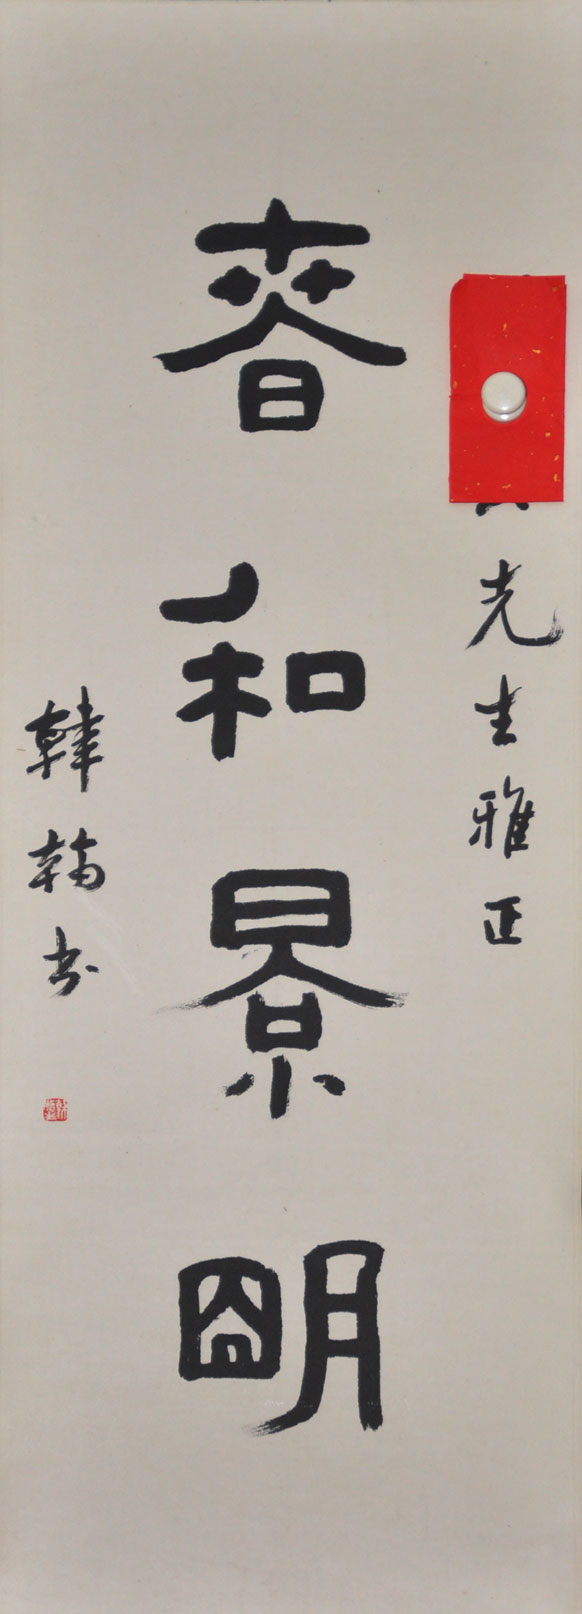 先生雅正
春和景明
韩翰书